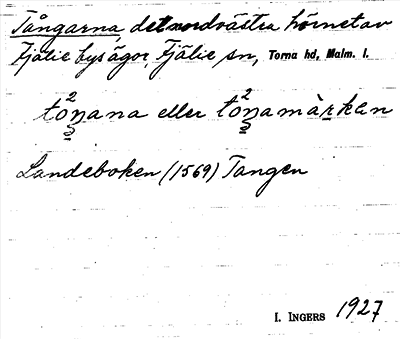 Tångarna, det nordvästra hörnet av
Fjälie byságor, Fjälie sn, Torna hd, Malm. l.
toŋana eller toŋamàrken
Landeboken (1569) Tangen
I. INGERS 1927